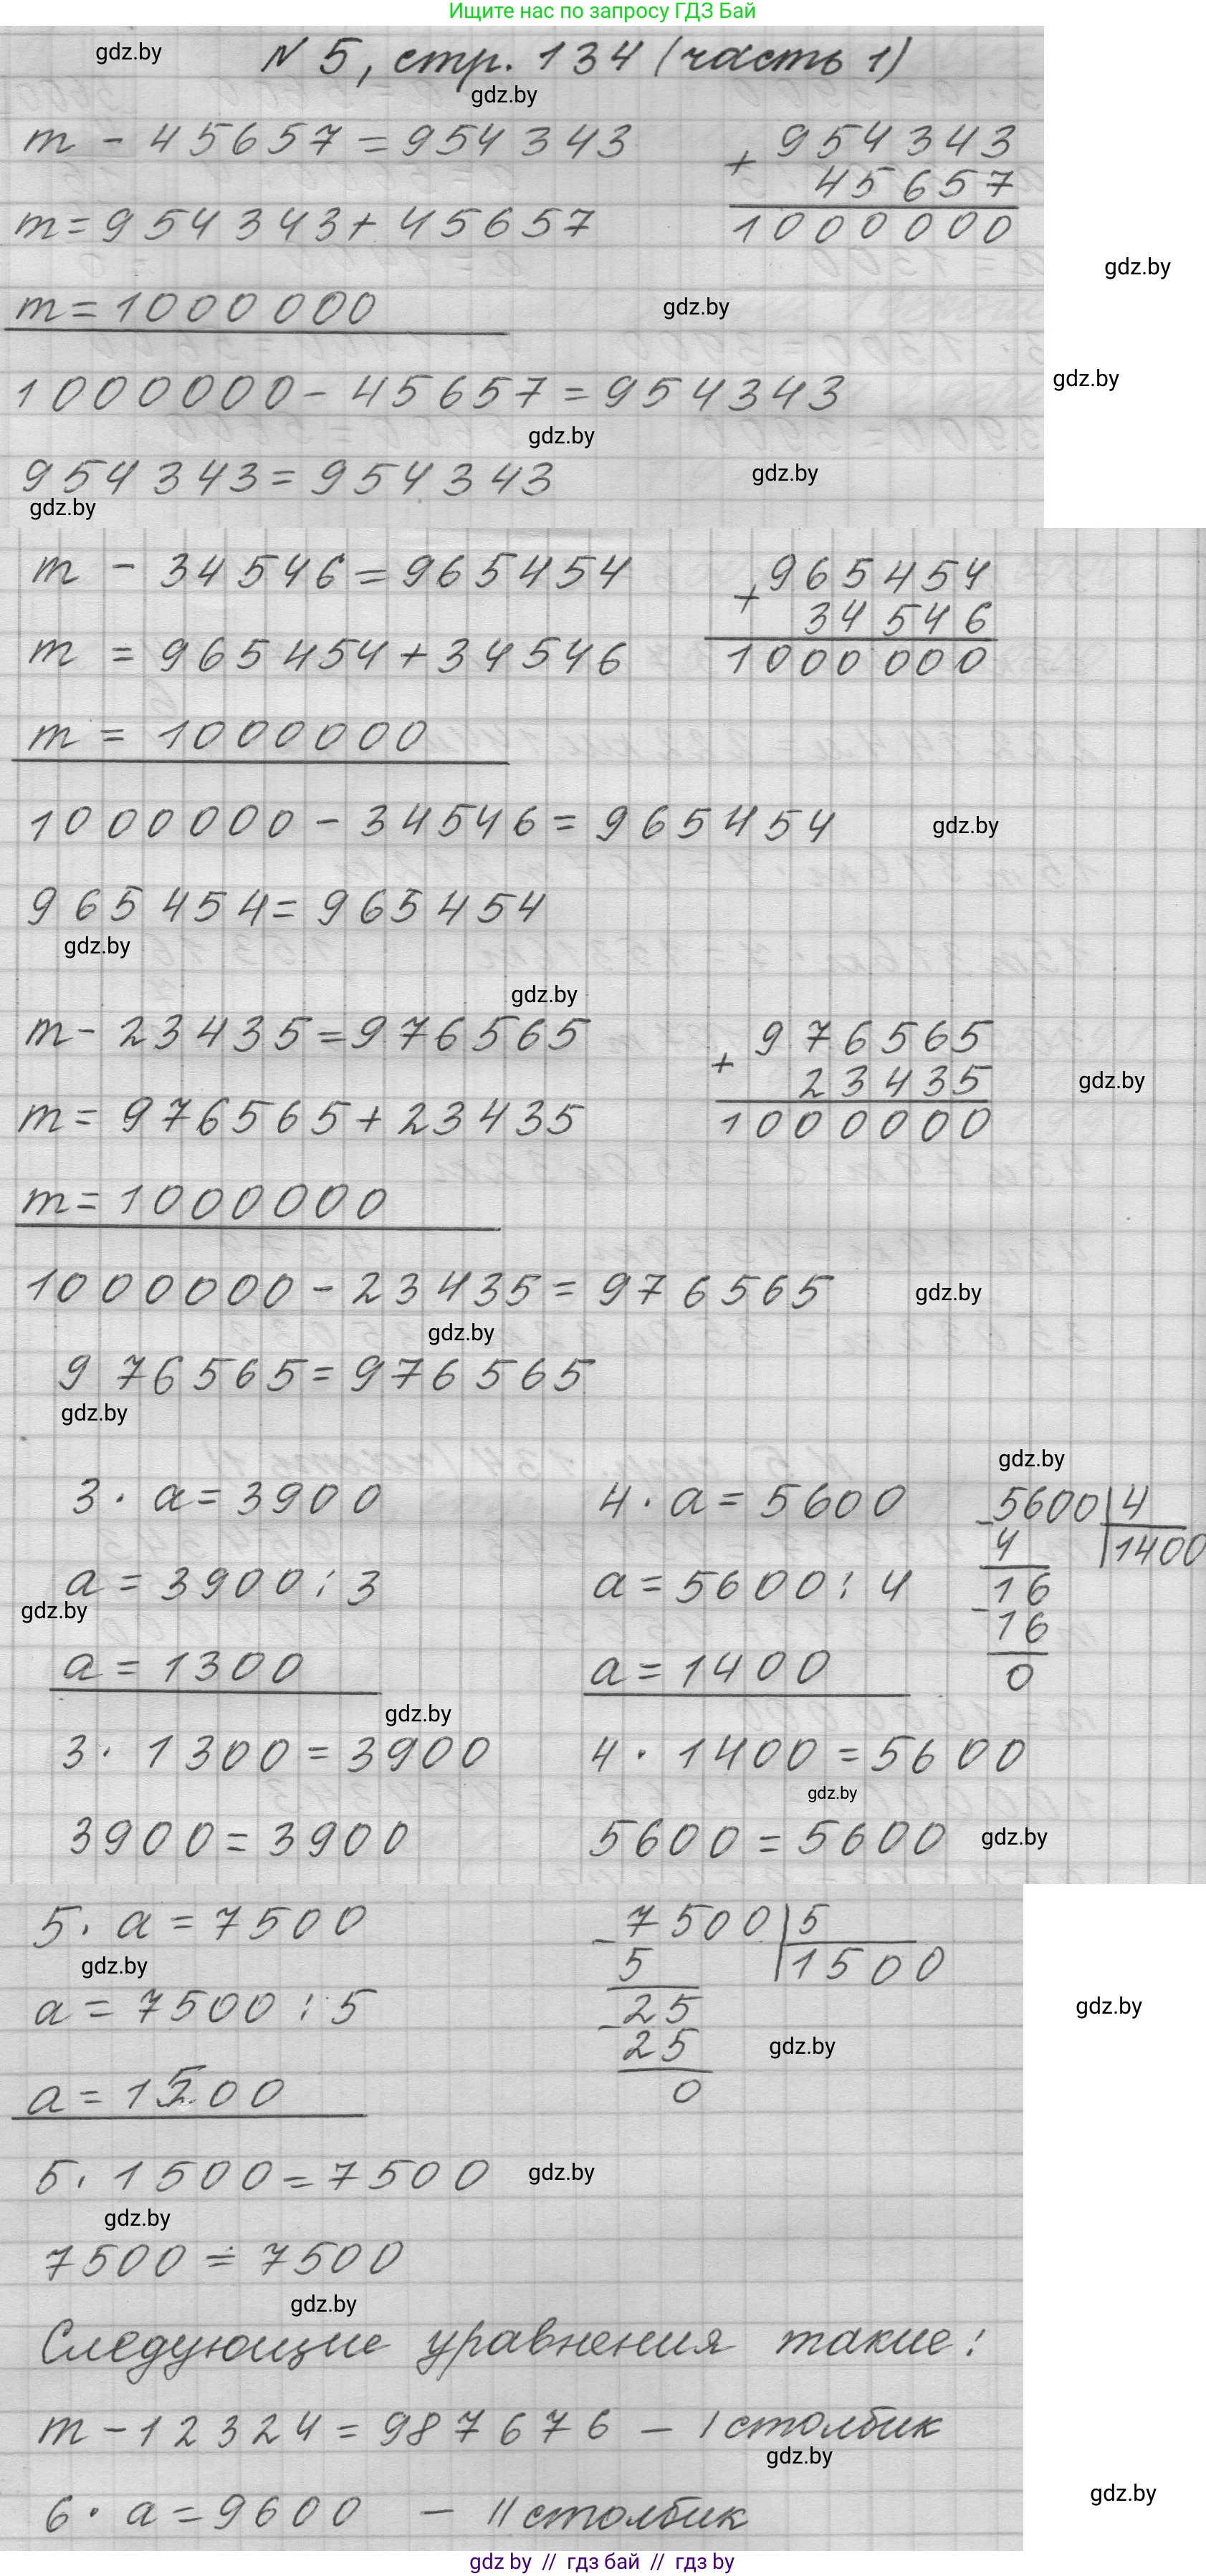 Ищите нас по запросу ГДЗ Бай
gdz.by
N 5, стр. 134 (часть 1)
gdz.by
m - 45657 = 954343
+ 954343
45657
1000000
m = 954343 + 45657
gdz.by
m = 1000000
gdz.by
1000000 - 45657 = 954343
gdz.by
gdz.by
954343 = 954343
gdz.by
gdz.by
m - 34546 = 965454
+ 965454
34546
1000000
m = 965454 + 34546
m = 1000000
1000000 - 34546 = 965454
gdz.by
965454 = 965454
gdz.by
gdz.by
m - 23435 = 976565
+ 976565
23435
1000000
gdz.by
m = 976565 + 23435
m = 1000000
1000000 - 23435 = 976565
gdz.by
gdz.by
976565 = 976565
gdz.by
gdz.by
3 · a = 3900
a = 3900 : 3
gdz.by
a = 1300
gdz.by
3 · 1300 = 3900
3900 = 3900
4 · a = 5600
a = 5600 : 4
a = 1400
4 · 1400 = 5600
gdz.by
5600 = 5600
gdz.by
- 5600 | 4
4 | 1400
- 16
16
0
5 · a = 7500
gdz.by
a = 7500 : 5
a = 1500
- 7500 | 5
5 | 1500
- 25
25
0
gdz.by
gdz.by
5 · 1500 = 7500
gdz.by
gdz.by
7500 = 7500
gdz.by
Следующие уравнения такие:
m - 12324 = 987676 – I столбик
gdz.by
gdz.by
6 · a = 9600 – II столбик
gdz by // гдз бай // гдз by